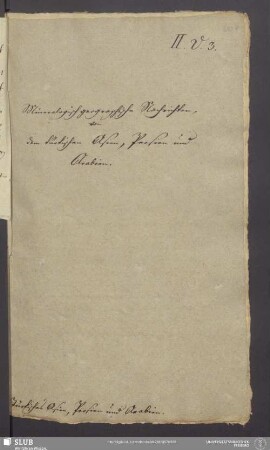 II. V. 3.
Mineralogisch geographische Nachrichten,
dem türkischen Asien, Persien und
Arabien.
Türkisches Asien, Persien und Arabien.
SLUB